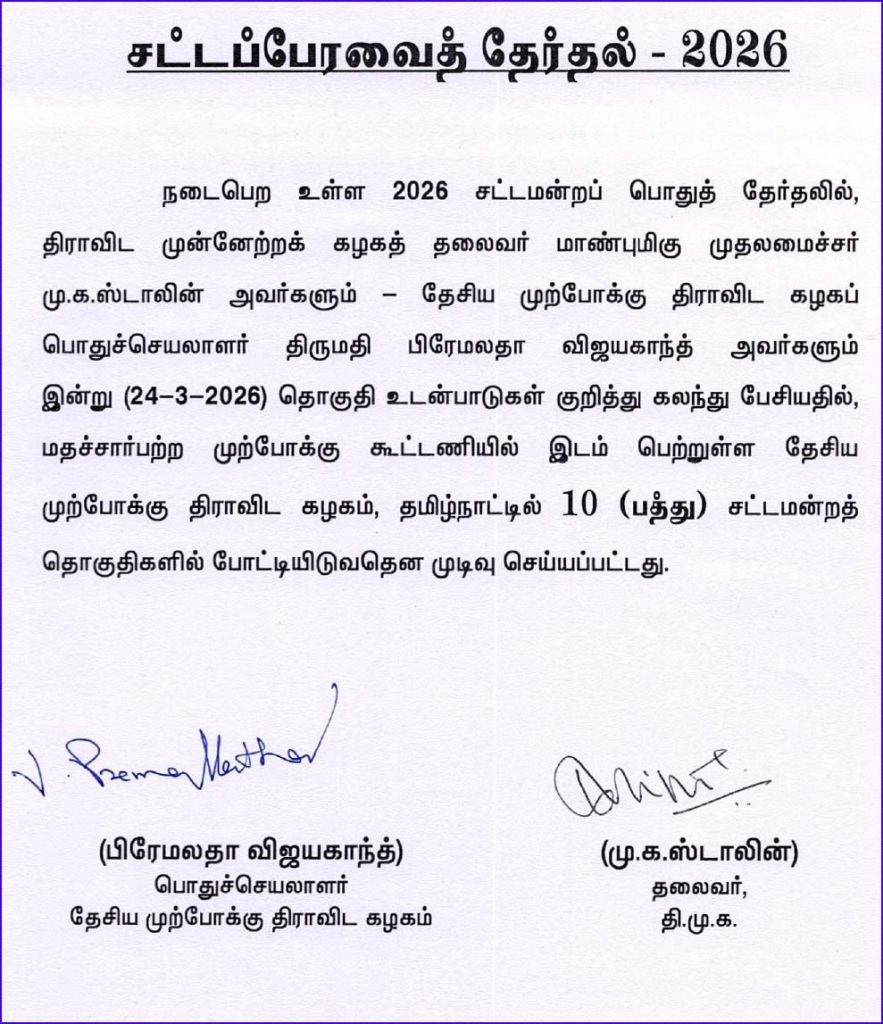 சட்டப்பேரவைத் தேர்தல் - 2026
நடைபெற உள்ள 2026 சட்டமன்றப் பொதுத் தேர்தலில்,
திராவிட முன்னேற்றக் கழகத் தலைவர் மாண்புமிகு முதலமைச்சர்
மு.க.ஸ்டாலின் அவர்களும் – தேசிய முற்போக்கு திராவிட கழகப்
பொதுச்செயலாளர் திருமதி பிரேமலதா விஜயகாந்த் அவர்களும்
இன்று (24-3-2026) தொகுதி உடன்பாடுகள் குறித்து கலந்து பேசியதில்,
மதச்சார்பற்ற முற்போக்கு கூட்டணியில் இடம் பெற்றுள்ள தேசிய
முற்போக்கு திராவிட கழகம், தமிழ்நாட்டில் 10 (பத்து) சட்டமன்றத்
தொகுதிகளில் போட்டியிடுவதென முடிவு செய்யப்பட்டது.
(பிரேமலதா விஜயகாந்த்)
பொதுச்செயலாளர்
தேசிய முற்போக்கு திராவிட கழகம்
(மு.க.ஸ்டாலின்)
தலைவர்,
தி.மு.க.